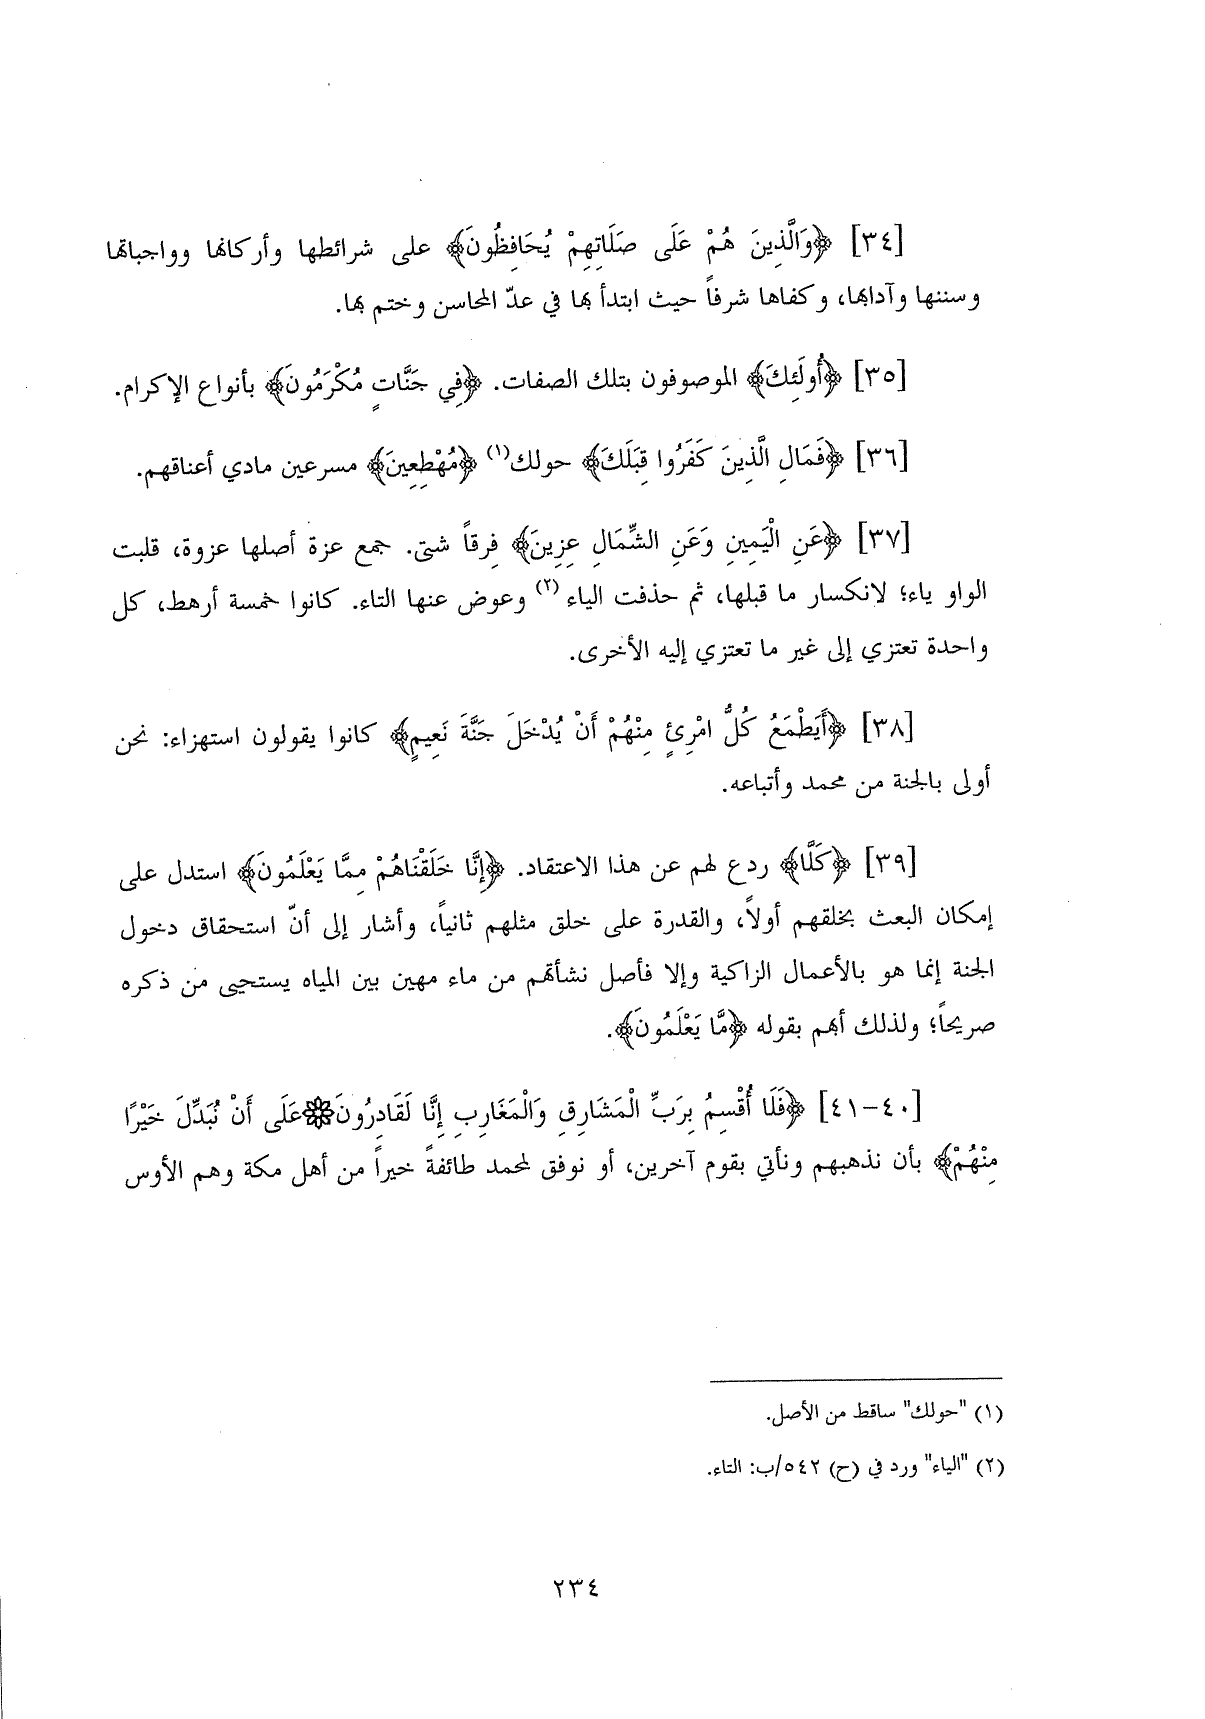 [٣٤] ﴿وَالَّذِينَ هُمْ عَلَى صَلَاتِهِمْ يُحَافِظُونَ﴾ على شرائطها وأركانها وواجباتها
وسننها وآدابها، وكفاها شرفاً حيث ابتدأ بها في عدّ المحاسن وختم بها.
[٣٥] ﴿أُولَئِكَ﴾ الموصوفون بتلك الصفات. ﴿فِي جَنَّاتٍ مُكْرَمُونَ﴾ بأنواع الإكرام.
[٣٦] ﴿فَمَالِ الَّذِينَ كَفَرُوا قِبَلَكَ﴾ حولك(١) ﴿مُهْطِعِينَ﴾ مسرعين مادي أعناقهم.
[٣٧] ﴿عَنِ الْيَمِينِ وَعَنِ الشِّمَالِ عِزِينَ﴾ فِرقاً شتى. جمع عزة أصلها عزوة، قلبت
الواو ياء؛ لانكسار ما قبلها، ثم حذفت الياء(٢) وعوض عنها التاء. كانوا خمسة أرهط، كل
واحدة تعتزي إلى غير ما تعتزي إليه الأخرى.
[٣٨] ﴿أَيَطْمَعُ كُلُّ امْرِئٍ مِنْهُمْ أَنْ يُدْخَلَ جَنَّةَ نَعِيمٍ﴾ كانوا يقولون استهزاء: نحن
أولى بالجنة من محمد وأتباعه.
[٣٩] ﴿كَلَّا﴾ ردع لهم عن هذا الاعتقاد. ﴿إِنَّا خَلَقْنَاهُمْ مِمَّا يَعْلَمُونَ﴾ استدل على
إمكان البعث بخلقهم أولاً، والقدرة على خلق مثلهم ثانياً، وأشار إلى أنّ استحقاق دخول
الجنة إنما هو بالأعمال الزاكية وإلا فأصل نشأتهم من ماء مهين بين المياه يستحيى من ذكره
صريحاً؛ ولذلك أبهم بقوله ﴿مَّا يَعْلَمُونَ﴾.
[٤٠-٤١] ﴿فَلَا أُقْسِمُ بِرَبِّ الْمَشَارِقِ وَالْمَغَارِبِ إِنَّا لَقَادِرُونَ۞عَلَى أَنْ نُبَدِّلَ خَيْرًا
مِنْهُمْ﴾ بأن نذهبهم ونأتي بقوم آخرين، أو نوفق لمحمد طائفةً خيراً من أهل مكة وهم الأوس
(١) "حولك" ساقط من الأصل.
(٢) "الياء" ورد في (ح) ٥٤٢/ب: التاء.
٢٣٤